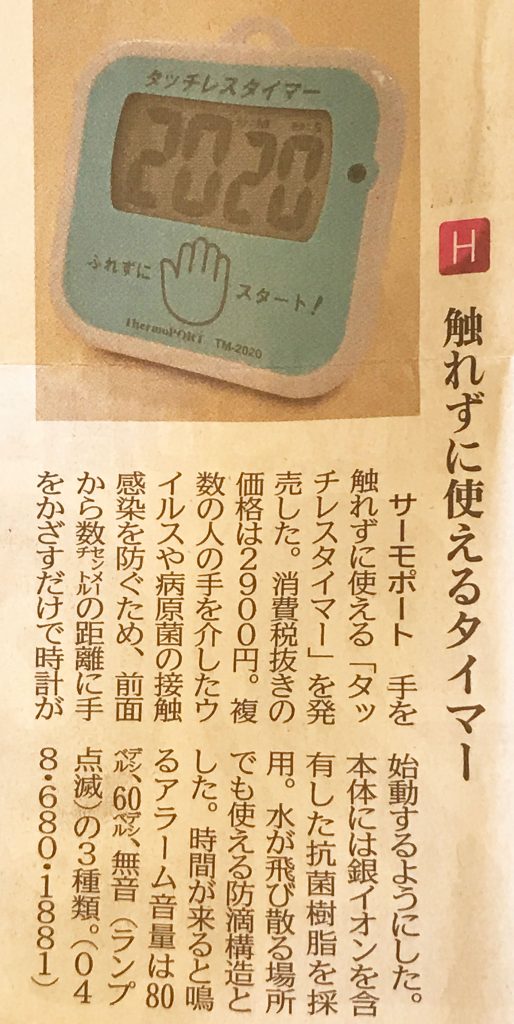 タッチレスタイマー
20 20
ふれずに
スタート!
ThermoPORT TM-2020
H
触れずに使えるタイマー
サーモポート 手を
触れずに使える「タッ
チレスタイマー」を発
売した。消費税抜きの
価格は2900円。複
数の人の手を介したウ
イルスや病原菌の接触
感染を防ぐため、前面
から数センチメートルの距離に手
をかざすだけで時計が
始動するようにした。
本体には銀イオンを含
有した抗菌樹脂を採
用。水が飛び散る場所
でも使える防滴構造と
した。時間が来ると鳴
るアラーム音量は80
デシベル、60デシベル、無音(ランプ
点滅)の3種類。(04
8・680・1881)